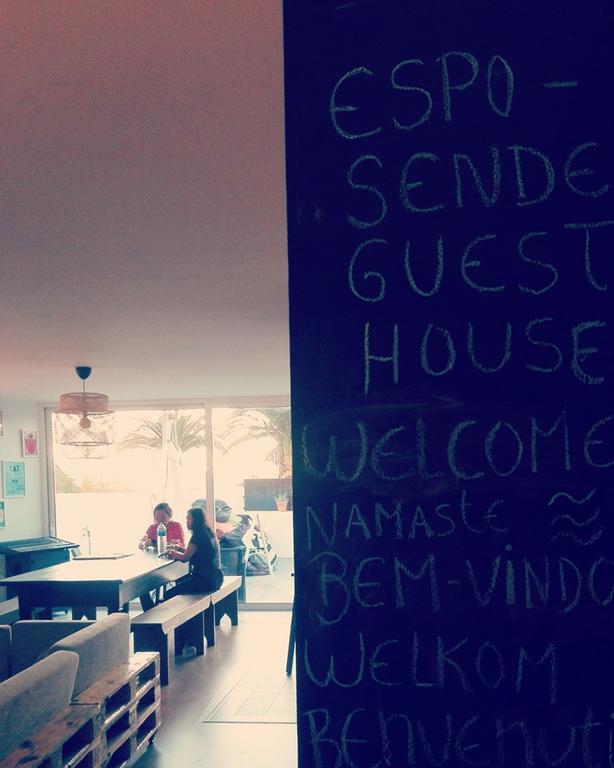 ESPO -
SENDE
GUEST
HOUSE
WELCOME
NAMASTE
BEM-VINDO
WELKOM
BENVENUTI
EAT